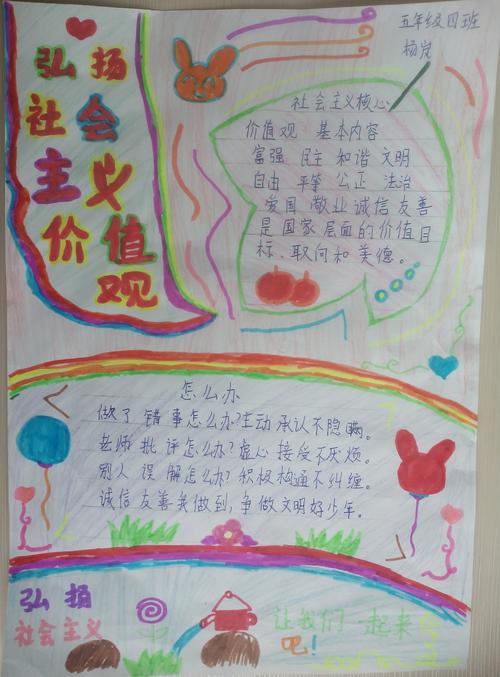 五年级四班
杨岚
弘扬
社会
主义
价值
观
社会主义核心
价值观 基本内容
富强 民主 和谐 文明
自由 平等 公正 法治
爱国 敬业 诚信 友善
是国家层面的价值目
标、取向和美德。
怎么办
做了错事怎么办?主动承认不隐瞒。
老师批评怎么办?虚心接受不厌烦。
别人误解怎么办?积极构通不纠缠。
诚信友善我做到,争做文明好少年。
弘扬
社会主义
让我们一起来
吧!